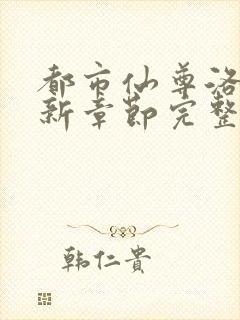 都市仙尊洛
新章节完整
韩仁贵